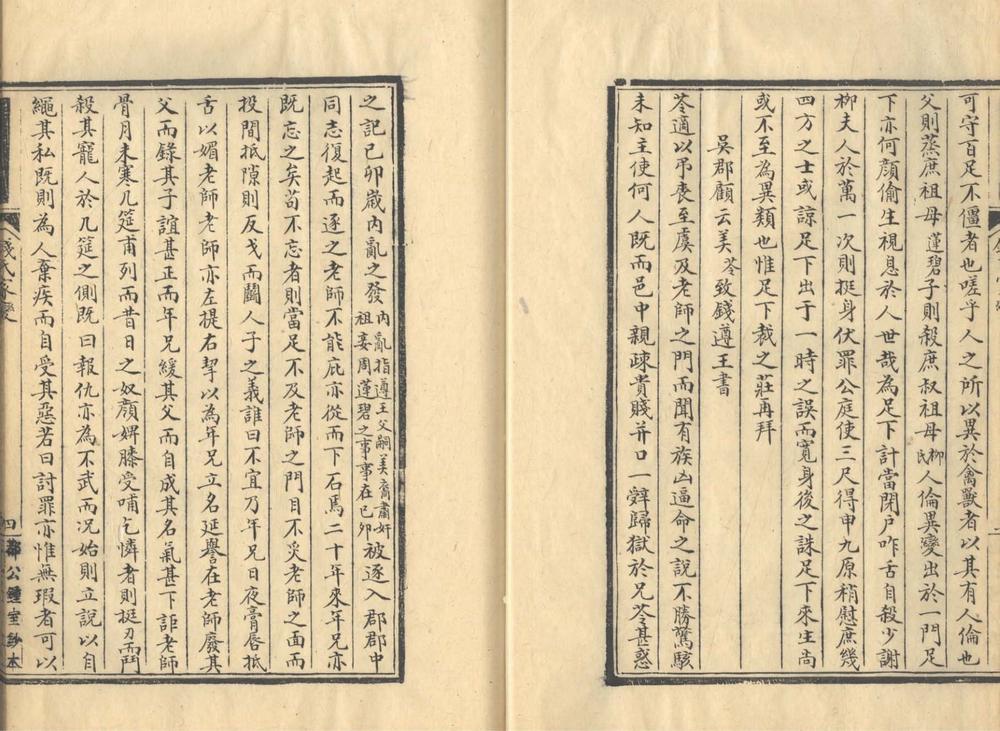 可守百足不僵者也嗟乎人之所以異於禽獸者以其有人倫也
父則蒸庶祖母蓮碧子則殺庶叔祖母柳氏人倫異變出於一門足
下亦何顏偷生視息於人世哉為足下計當閉戶咋舌自殺少謝
柳夫人於萬一次則挺身伏罪公庭使三尺得申九原稍慰庶幾
四方之士或諒足下出于一時之誤而寬身後之誅足下來生尚
或不至為異類也惟足下裁之莊再拜
吳郡顧云美苓致錢遵王書
苓適以弔喪至虞及老師之門而聞有族凶逼命之說不勝驚駭
未知主使何人既而邑中親疎貴賤并口一辭歸獄於兄苓甚惑
之記已卯歲內亂之發內亂指遵王父嗣美裔肅奸祖妾周蓮碧之事事在己卯被逐入郡郡中
同志復起而逐之老師不能庇亦從而下石焉二十年來年兄亦
既忘之矣苟不忘者則當足不及老師之門目不災老師之面而
投間抵隙則反戈而鬭人子之義誰曰不宜乃年兄日夜膏唇抵
舌以媚老師老師亦左提右挈以為年兄立名延譽在老師廢其
父而錄其子誼甚正而年兄緩其父而自成其名氣甚下詎老師
骨月未寒几筵甫列而昔日之奴顏婢膝受哺乞憐者則挺刃而鬥
殺其寵人於几筵之側既曰報仇亦為不武而况始則立說以自
繩其私既則為人棄疾而自受其惡若曰討罪亦惟無瑕者可以
錢氏家變
四
郡公鍾室鈔本